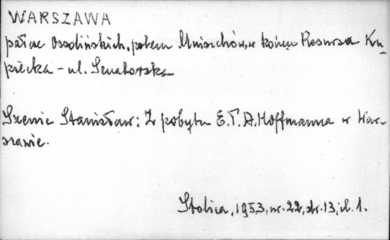 WARSZAWA
pałac Ossolińskich, potem Mniszchów, w końcu Resursa Ku-
piecka - ul. Senatorska
Szenic Stanisław: Z pobytu E.T.A. Hoffmanna w War-
szawie.
Stolica, 1953, nr. 22, str. 13, il. 1.